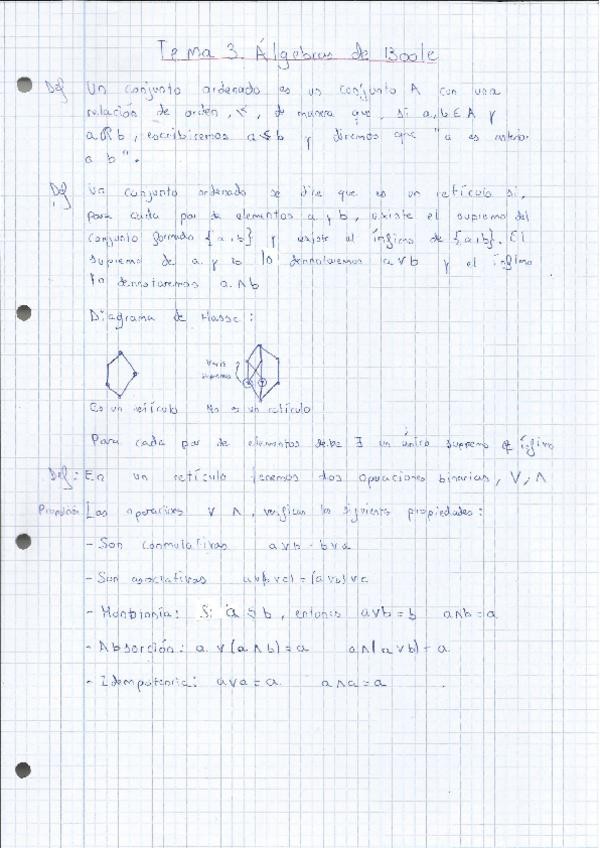 Tema 3. Álgebras de Boole
Def Un conjunto ordenado es un conjunto A con una
relación de orden, ≤, de manera que, si a,b ∈ A y
aRb, escribiremos a ≤ b y diremos que "a es anterior
a b".
Def Un conjunto ordenado se dice que es un retículo si,
para cada par de elementos a y b, existe el supremo del
conjunto formado {a,b} y existe el ínfimo de {a,b}. El
supremo de a y b lo dennotaremos a∨b y el ínfimo
lo dennotaremos a∧b
Diagrama de Hasse:
supremos
Es un retículo No es un retículo
Para cada par de elementos debe ∃ un único supremo ínfimo
Def: En un retículo tenemos dos operaciones binarias, ∨, ∧
Las operaciones ∨ ∧, verifican las siguientes propiedades:
- Son conmutativas a∨b = b∨a
- Son asociativas a∨(b∨c) = (a∨b)∨c
- Monotonía: Si a ≤ b, entonces a∨b = b a∧b = a
- Absorción: a∨(a∧b) = a a∧(a∨b) = a
- Idempotencia: a∨a = a a∧a = a